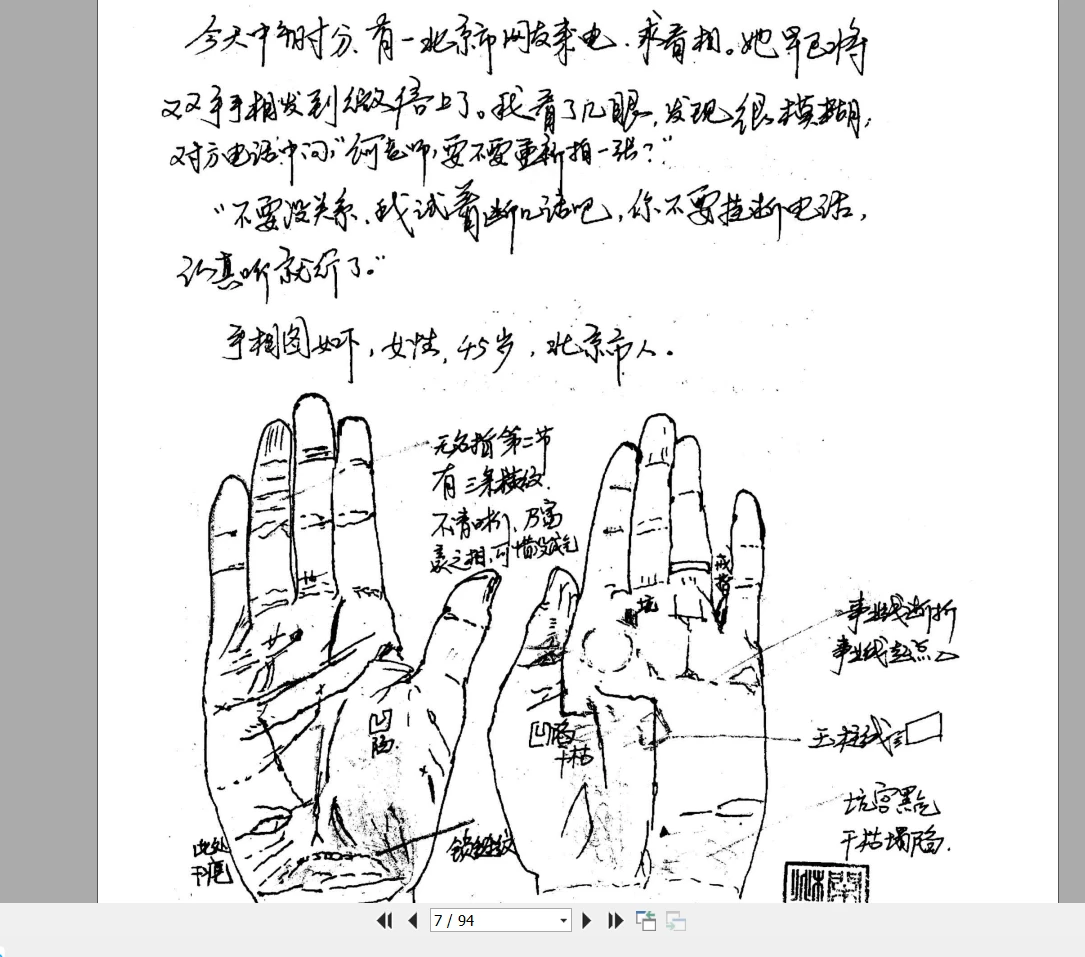 今天中午时分、有一北京市网友来电、求看相。她早已将
双手手相发到微信上了。我看了几眼，发现很模糊，
对方电话中问，“何老师，要不要重新拍一张？”
“不要没关系、我试着断口诀吧，你不要挂断电话，
认真听就行了。”
手相图如下，女性，45岁，北京市人。
无名指第二节
有三条横纹.
不清晰、乃富
豪之相，可惜没成气
戒指
坑
事业线断折
事业线起点△
凹陷.
凹陷
干枯
玉柱线三
坎宫黑气
干枯塌陷.
此处
锁链纹
7 / 94